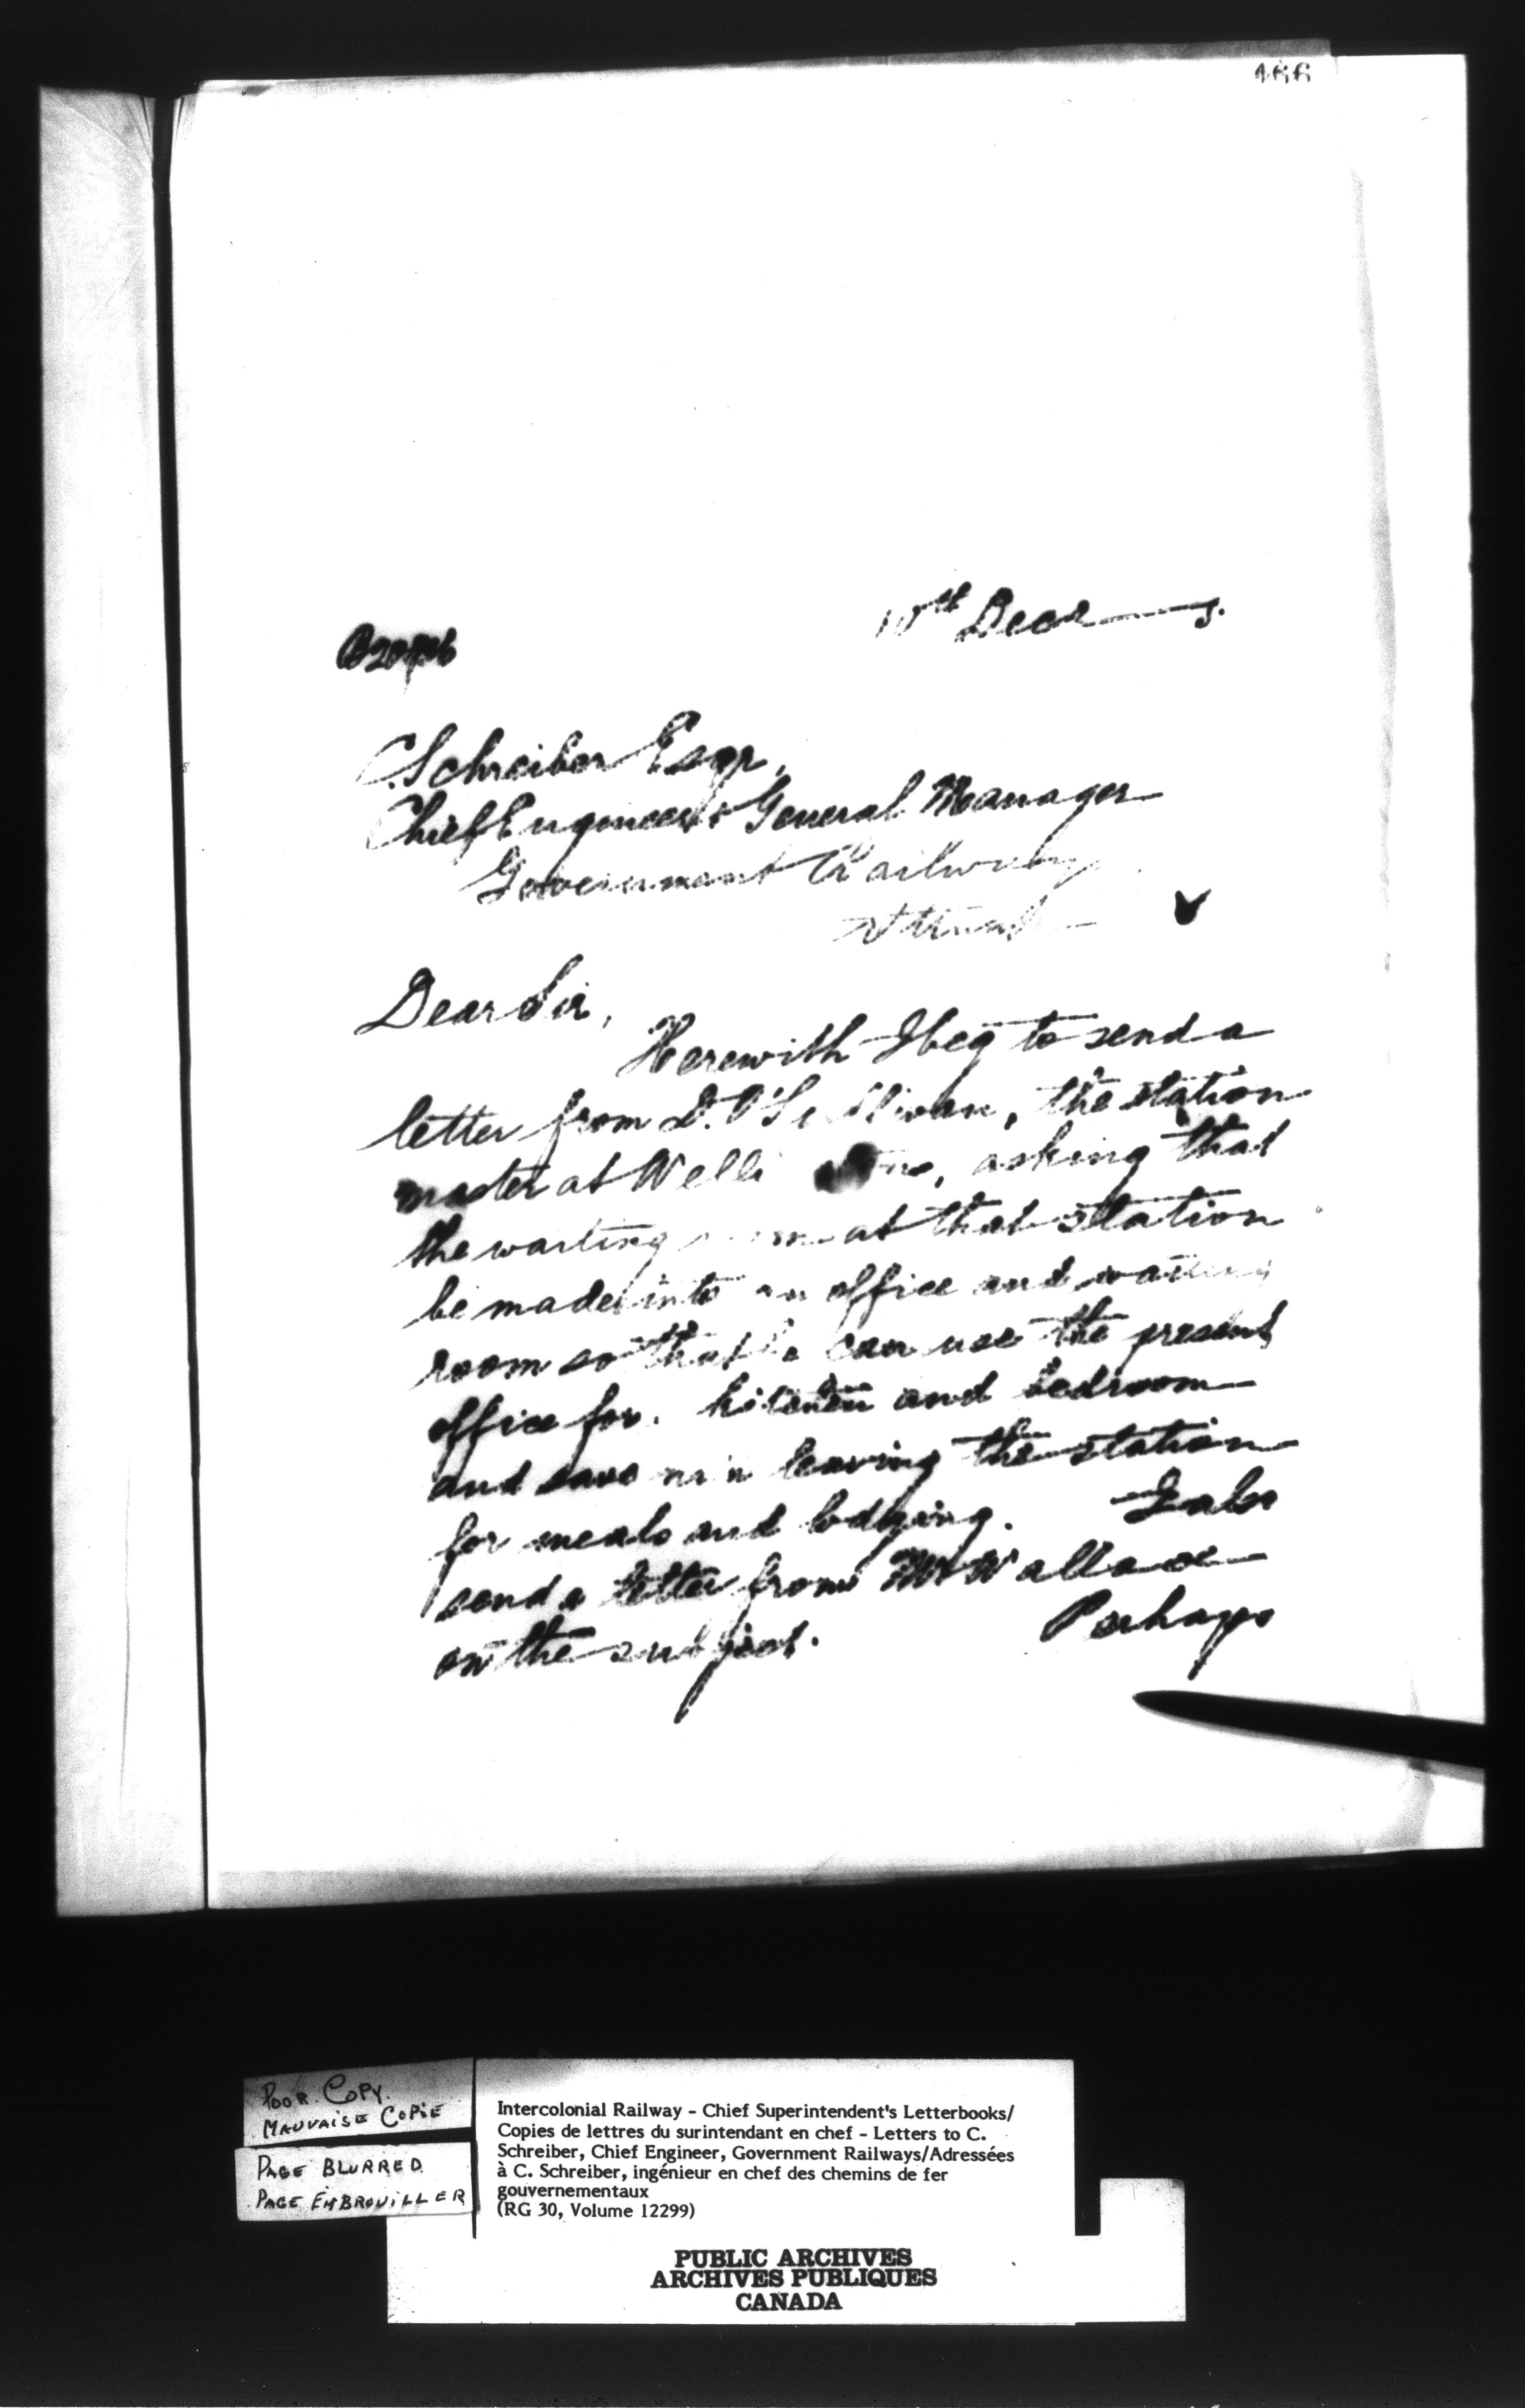 466
10th Decr
C. Schreiber Esqr,
Chief Engineer & General Manager
Government Railways
Dear Sir,
Herewith I beg to send a
letter from D. O'Sullivan, the station
master at asking that
the waiting room at that station
be made into an office and waiting
room so that he can use the present
office for kitchen and bedroom
and save him leaving the station
for meals and lodging. I also
send a letter from Mr Wallace
on the subject.
Perhaps
POOR COPY.
MAUVAISE COPIE
PAGE BLURRED
PAGE EMBROUILLER
Intercolonial Railway - Chief Superintendent's Letterbooks/
Copies de lettres du surintendant en chef - Letters to C.
Schreiber, Chief Engineer, Government Railways/Adressées
à C. Schreiber, ingénieur en chef des chemins de fer
gouvernementaux
(RG 30, Volume 12299)
PUBLIC ARCHIVES
ARCHIVES PUBLIQUES
CANADA